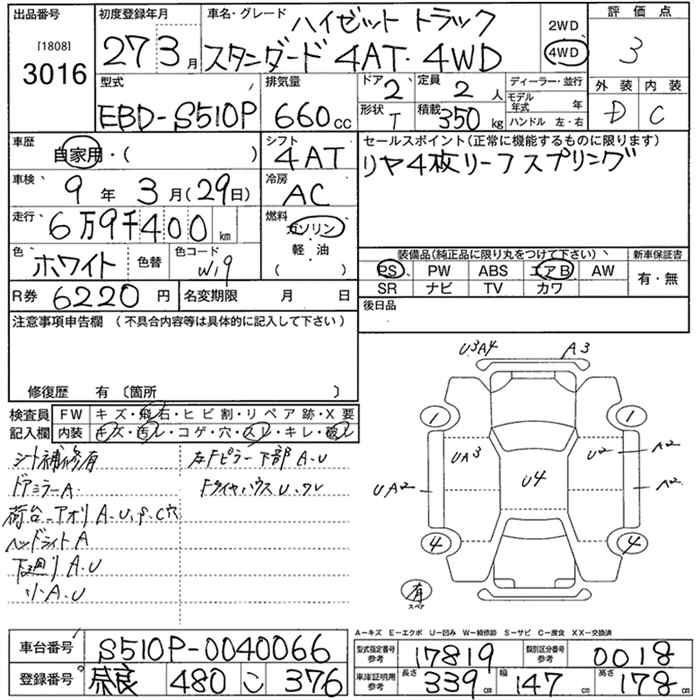 出品番号
[1808]
3016
初度登録年月
27 3月
車名・グレード
ハイゼット トラック
スタンダード 4AT・4WD
2WD
4WD
評価点
3
外装 内装
D C
型式
EBD-S510P
排気量
660cc
ドア 2
定員 2人
形状 T
積載 350kg
ディーラー・並行
モデル年式 年
ハンドル 左・右
車歴
自家用・( )
シフト
4AT
セールスポイント(正常に機能するものに限ります)
リヤ4枚リーフスプリング
車検
9年3月(29日)
冷房
AC
走行
6万9千400km
燃料
ガソリン
・
軽・油
( )
色
ホワイト
色替
色コード
W19
装備品(純正品に限り丸をつけて下さい)
PS PW ABS エアB AW
SR ナビ TV カワ
新車保証書
有・無
R券 6220円
名変期限 月 日
後日品
注意事項申告欄 (不具合内容等は具体的に記入して下さい)
修復歴 有〔箇所 〕
検査員記入欄
FW キズ・飛石・ヒビ割・リペア跡・X要
内装 キズ・汚レ・コゲ・穴・スレ・キレ・破レ
シート補修有
ドアミラーA
荷台_アオリA.U.P.C穴
ヘッドライトA
下廻りA.U
小A.U
左Fピラー下部A.U
U3A4 A3
1 1
UA3 U2 A2
UA2 U4 A2
4 4
有
スペア
A−キズ E−エクボ U−凹み W−補修跡 S−サビ C−腐食 XX−交換済
車台番号 S510P-0040066
登録番号 奈良 480 こ 376
型式指定番号 参考 17819
類別区分番号 参考 0018
車庫証明用 参考 長さ 339cm 幅 147cm 高さ 178cm